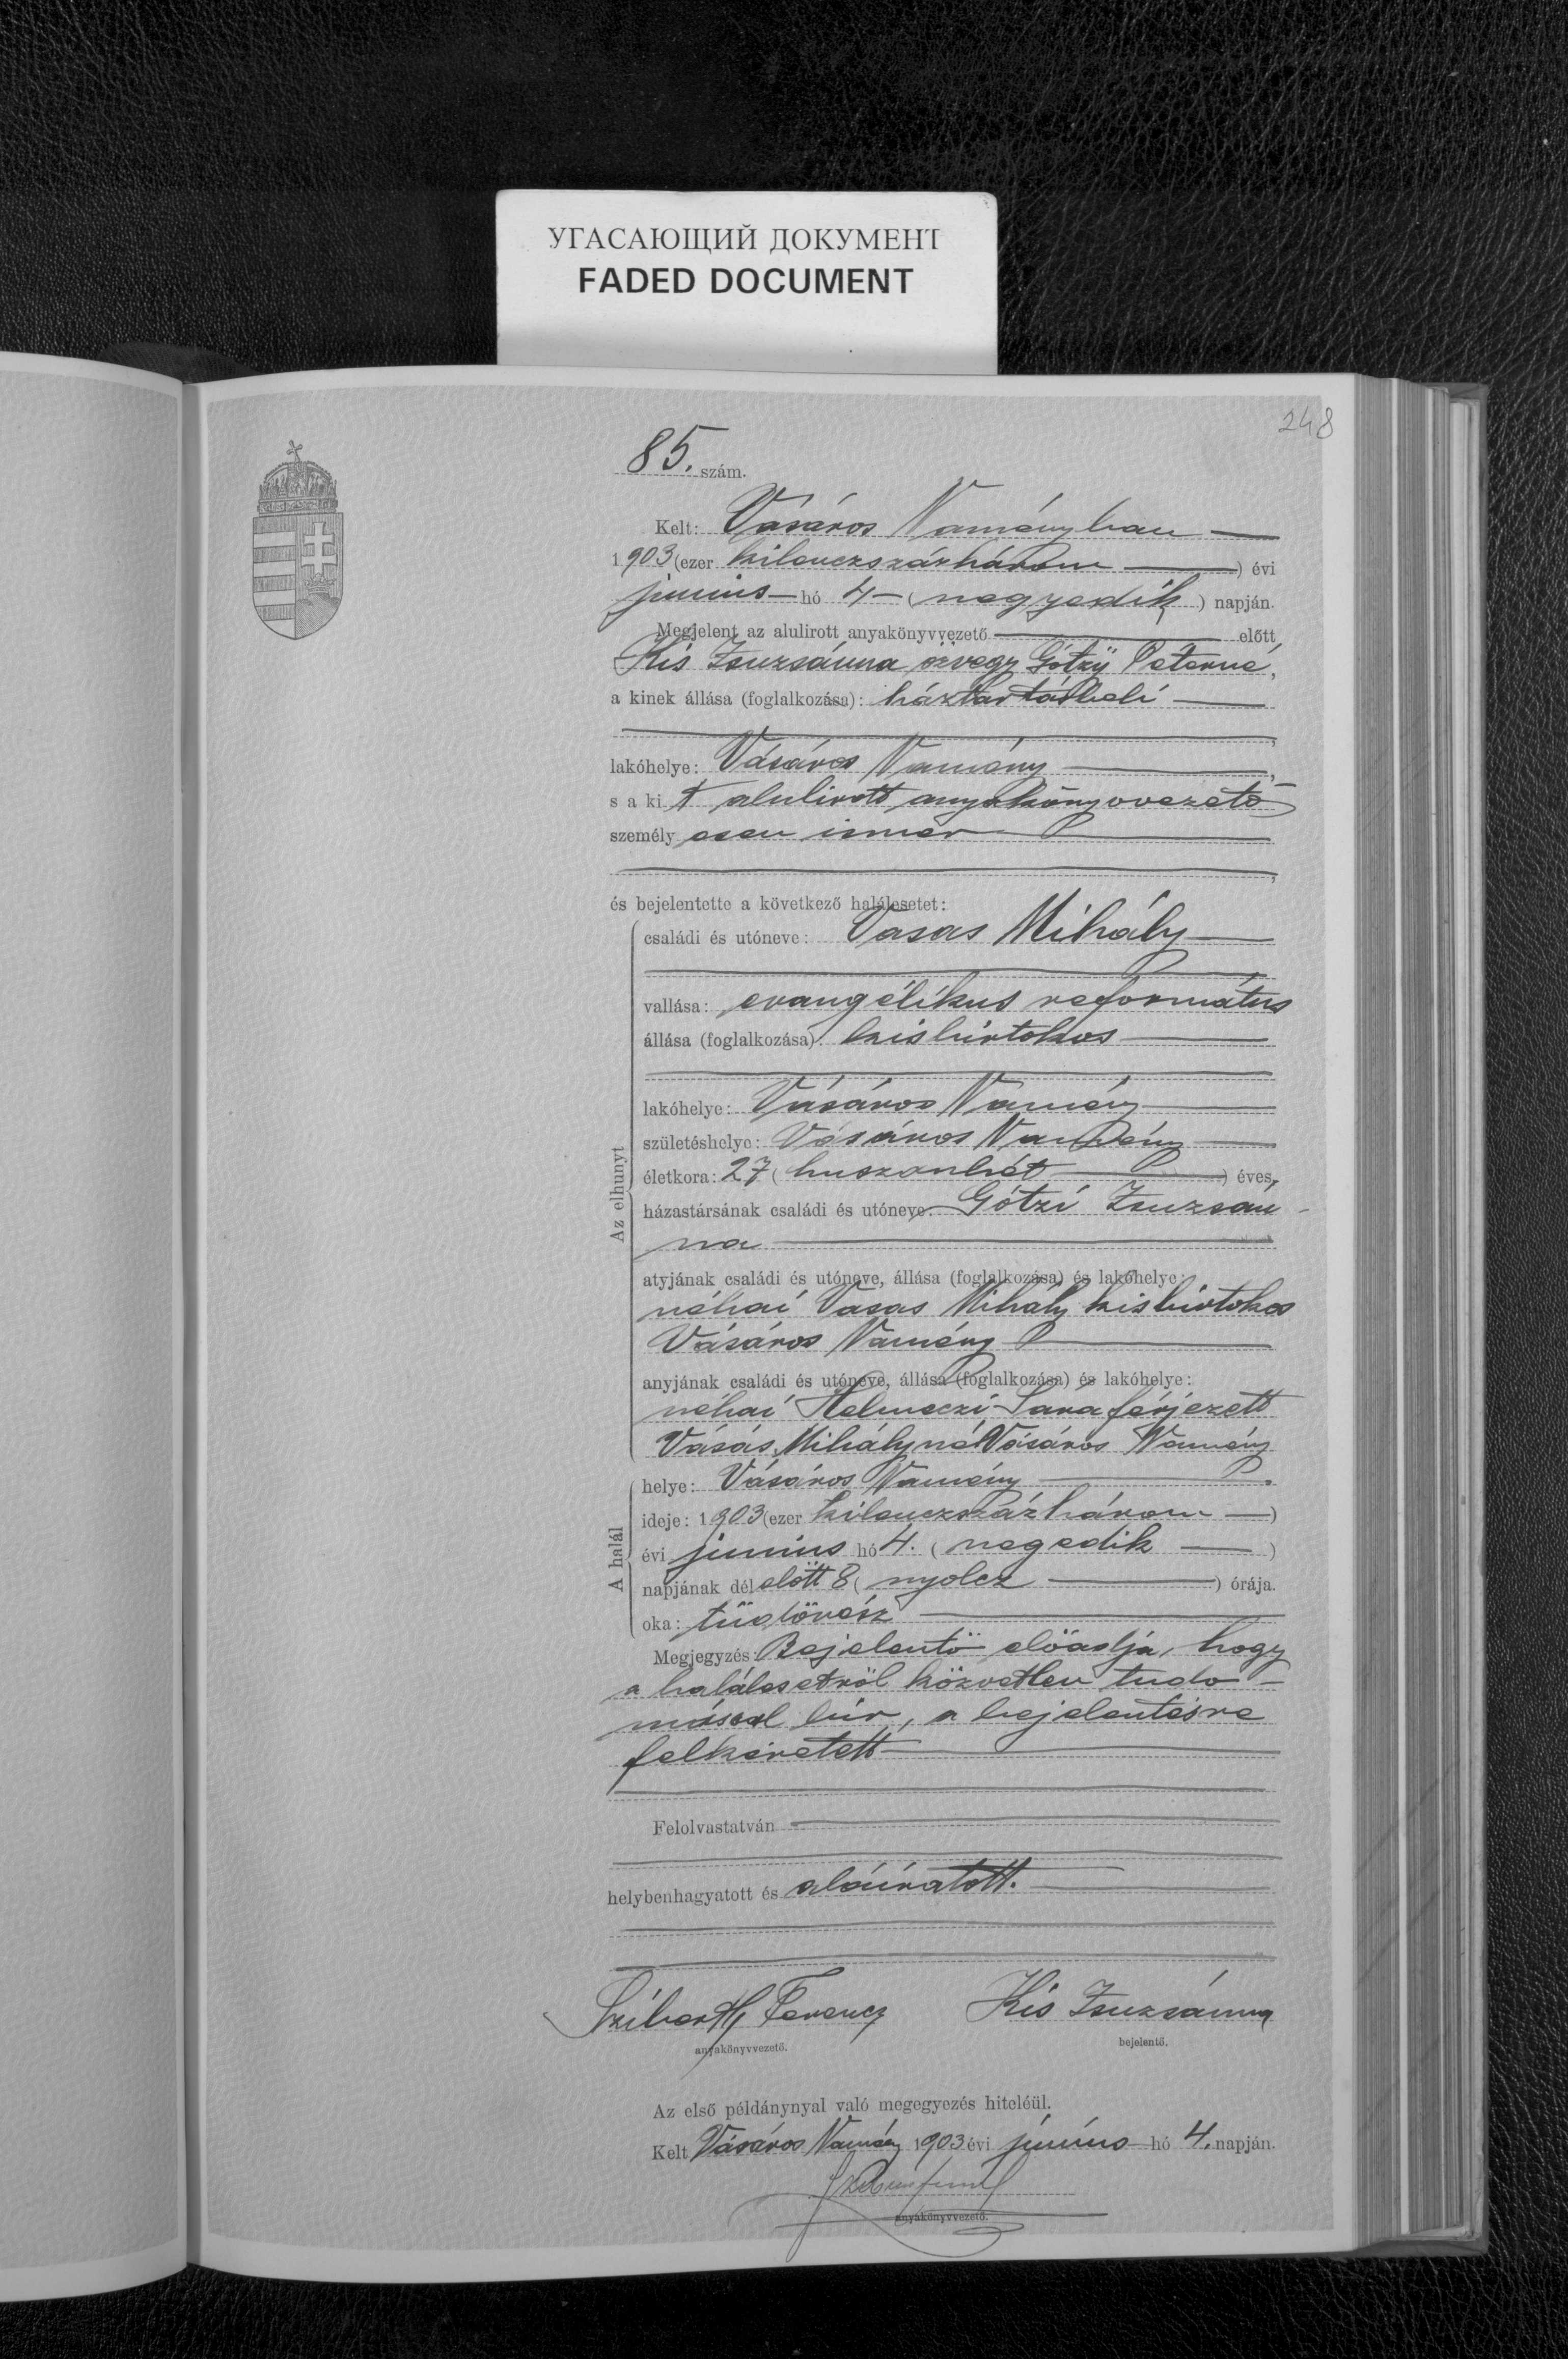 УГАСАЮЩИЙ ДОКУМЕНТ
FADED DOCUMENT
248
85. szám.
Kelt: Vásáros Naményban
1903 (ezer kilenczszázhárom) évi
junius hó 4 (negyedik) napján.
Megjelent az alulirott anyakönyvvezető előtt
Kis Zsuzsánna özvegy Gótzÿ Péterné,
a kinek állása (foglalkozása): háztartásbeli
lakóhelye: Vásáros Namény,
s a ki t alulirott anyakönyvvezető
személy esen ismer
és bejelentette a következő halálesetet:
Az elhunyt
családi és utóneve: Vasas Mihály
vallása: evangélikus református
állása (foglalkozása): kisbirtokos
lakóhelye: Vásáros Namény
születéshelye: Vásáros Namény
életkora: 27 (huszonhét) éves,
házastársának családi és utóneve: Gótzi Zsuzsán-
na
atyjának családi és utóneve, állása (foglalkozása) és lakóhelye:
néhai Vasas Mihály kisbirtokos
Vásáros Namény
anyjának családi és utóneve, állása (foglalkozása) és lakóhelye:
néhai Helmeczi Sára férjezett
Vásás Mihályné Vásáros Namény
A halál
helye: Vásáros Namény.
ideje: 1903 (ezer kilenczszázhárom)
évi junius hó 4. (negedik)
napjának dél előtt 8 (nyolcz) órája.
oka: tüdövész
Megjegyzés: Bejelentö elöadja, hogy
a halálesetröl közvetlen tudo-
mással bir, a bejelentésre
felkéretett
Felolvastatván
helybenhagyatott és aláiratott.
Ferencz Kis Zsuzsánna
anyakönyvvezető. bejelentő.
Az első példánynyal való megegyezés hiteléül.
Kelt Vásáros Namény 1903 évi június hó 4. napján.
anyakönyvvezető.